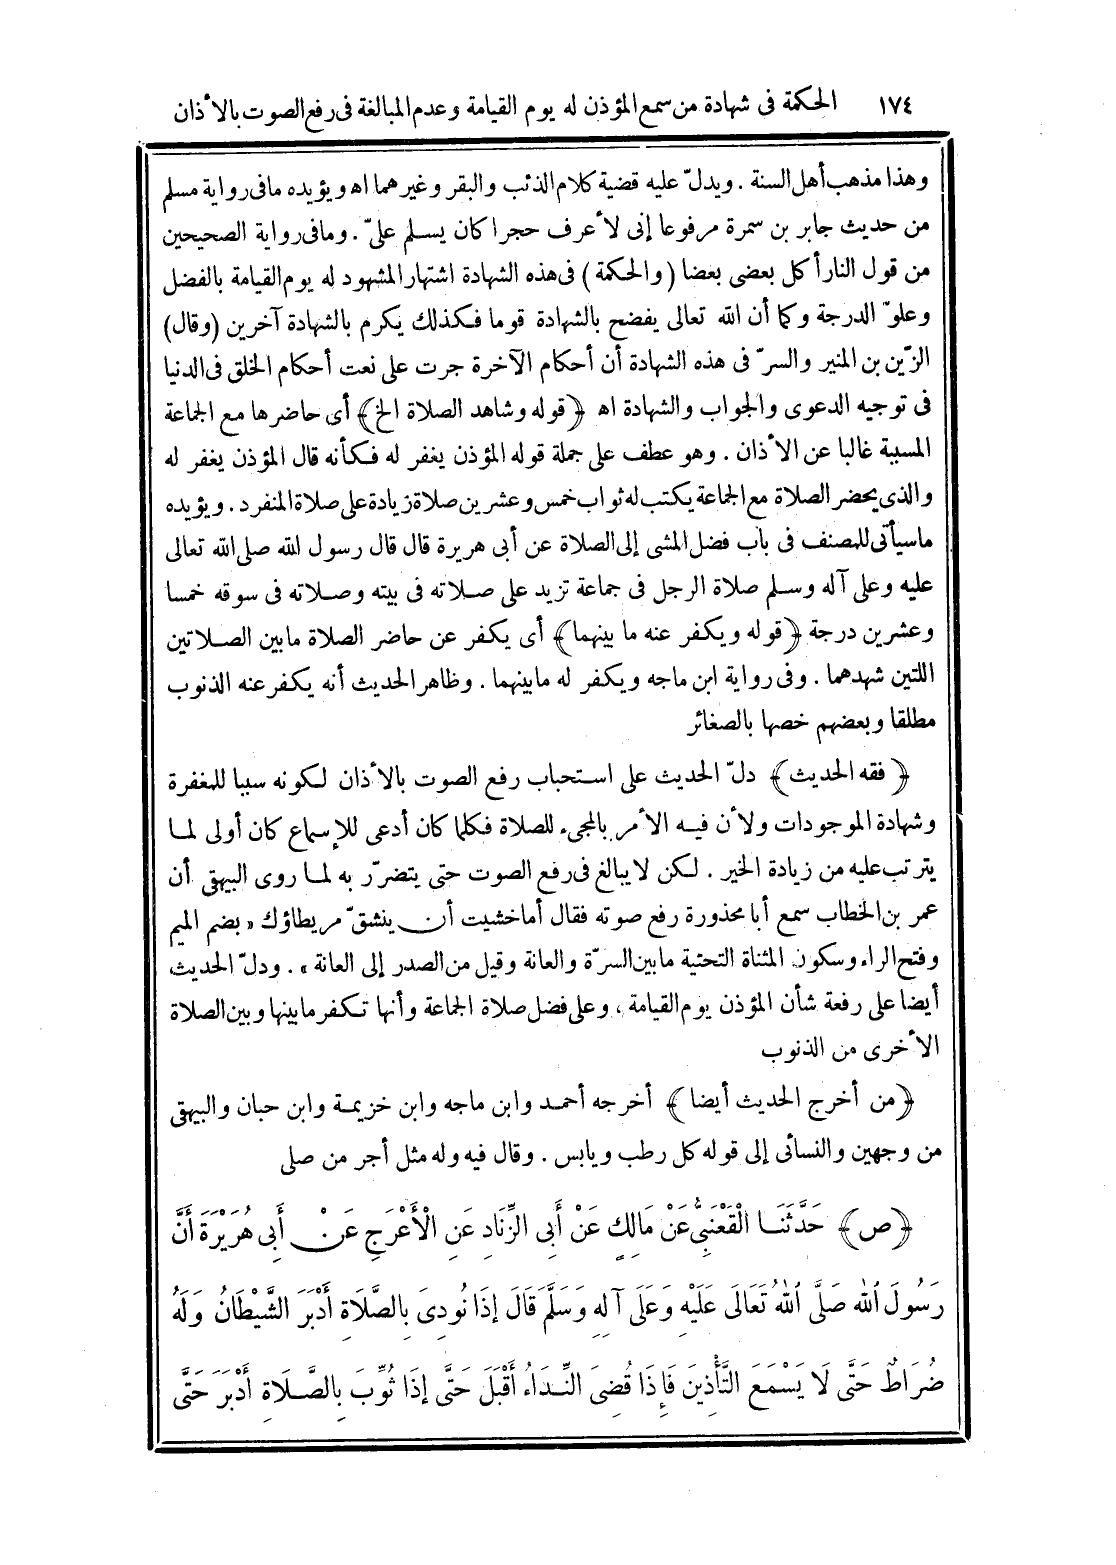 ١٧٤ الحكمة فى شهادة من سمع المؤذن له يوم القيامة وعدم المبالغة فى رفع الصوت بالأذان
وهذا مذهب أهل السنة . ويدلّ عليه قضية كلام الذئب والبقر وغيرهما اه ويؤيده مافى رواية مسلم
من حديث جابر بن سمرة مرفوعا إنى لأعرف حجرا كان يسلم علىّ . ومافى رواية الصحيحين
من قول النار أكل بعضى بعضا (والحكمة) فى هذه الشهادة اشتهار المشهود له يوم القيامة بالفضل
وعلوّ الدرجة وكما أن الله تعالى يفضح بالشهادة قوما فكذلك يكرم بالشهادة آخرين (وقال)
الزّين بن المنير والسرّ فى هذه الشهادة أن أحكام الآخرة جرت على نعت أحكام الخلق فى الدنيا
فى توجيه الدعوى والجواب والشهادة اه ﴿قوله وشاهد الصلاة الخ﴾ أى حاضرها مع الجماعة
المسببة غالبا عن الأذان . وهو عطف على جملة قوله المؤذن يغفر له فكأنه قال المؤذن يغفر له
والذى يحضر الصلاة مع الجماعة يكتب له ثواب خمس وعشرين صلاة زيادة على صلاة المنفرد . ويؤيده
ماسيأتى للمصنف فى باب فضل المشى إلى الصلاة عن أبى هريرة قال قال رسول الله صلى الله تعالى
عليه وعلى آله وسلم صلاة الرجل فى جماعة تزيد على صلاته فى بيته وصلاته فى سوقه خمسا
وعشرين درجة ﴿قوله ويكفر عنه ما بينهما﴾ أى يكفر عن حاضر الصلاة مابين الصلاتين
اللتين شهدهما . وفى رواية ابن ماجه ويكفر له مابينهما . وظاهر الحديث أنه يكفر عنه الذنوب
مطلقا وبعضهم خصها بالصغائر
﴿فقه الحديث﴾ دلّ الحديث على استحباب رفع الصوت بالأذان لكونه سببا للمغفرة
وشهادة الموجودات ولأن فيه الأمر بالمجىء للصلاة فكلما كان أدعى للإسماع كان أولى لما
يترتب عليه من زيادة الخير . لكن لا يبالغ فى رفع الصوت حتى يتضرّر به لما روى البيهقى أن
عمر بن الخطاب سمع أبا محذورة رفع صوته فقال أماخشيت أن ينشقّ مريطاؤك «بضم الميم
وفتح الراء وسكون المثناة التحتية مابين السرّة والعانة وقيل من الصدر إلى العانة» . ودلّ الحديث
أيضا على رفعة شأن المؤذن يوم القيامة ، وعلى فضل صلاة الجماعة وأنها تكفر مابينها وبين الصلاة
الأخرى من الذنوب
﴿من أخرج الحديث أيضا﴾ أخرجه أحمد وابن ماجه وابن خزيمة وابن حبان والبيهقى
من وجهين والنسائى إلى قوله كل رطب ويابس . وقال فيه وله مثل أجر من صلى
﴿ص﴾ حَدَّثَنَا الْقَعْنَبِىُّ عَنْ مَالِكٍ عَنْ أَبِى الزِّنَادِ عَنِ الْأَعْرَجِ عَنْ أَبِى هُرَيْرَةَ أَنَّ
رَسُولَ اللهِ صَلَّى اللهُ تَعَالَى عَلَيْهِ وَعَلَى آلِهِ وَسَلَّمَ قَالَ إِذَا نُودِىَ بِالصَّلَاةِ أَدْبَرَ الشَّيْطَانُ وَلَهُ
ضُرَاطٌ حَتَّى لَا يَسْمَعَ التَّأْذِينَ فَإِذَا قُضِىَ النِّدَاءُ أَقْبَلَ حَتَّى إِذَا ثُوِّبَ بِالصَّلَاةِ أَدْبَرَ حَتَّى